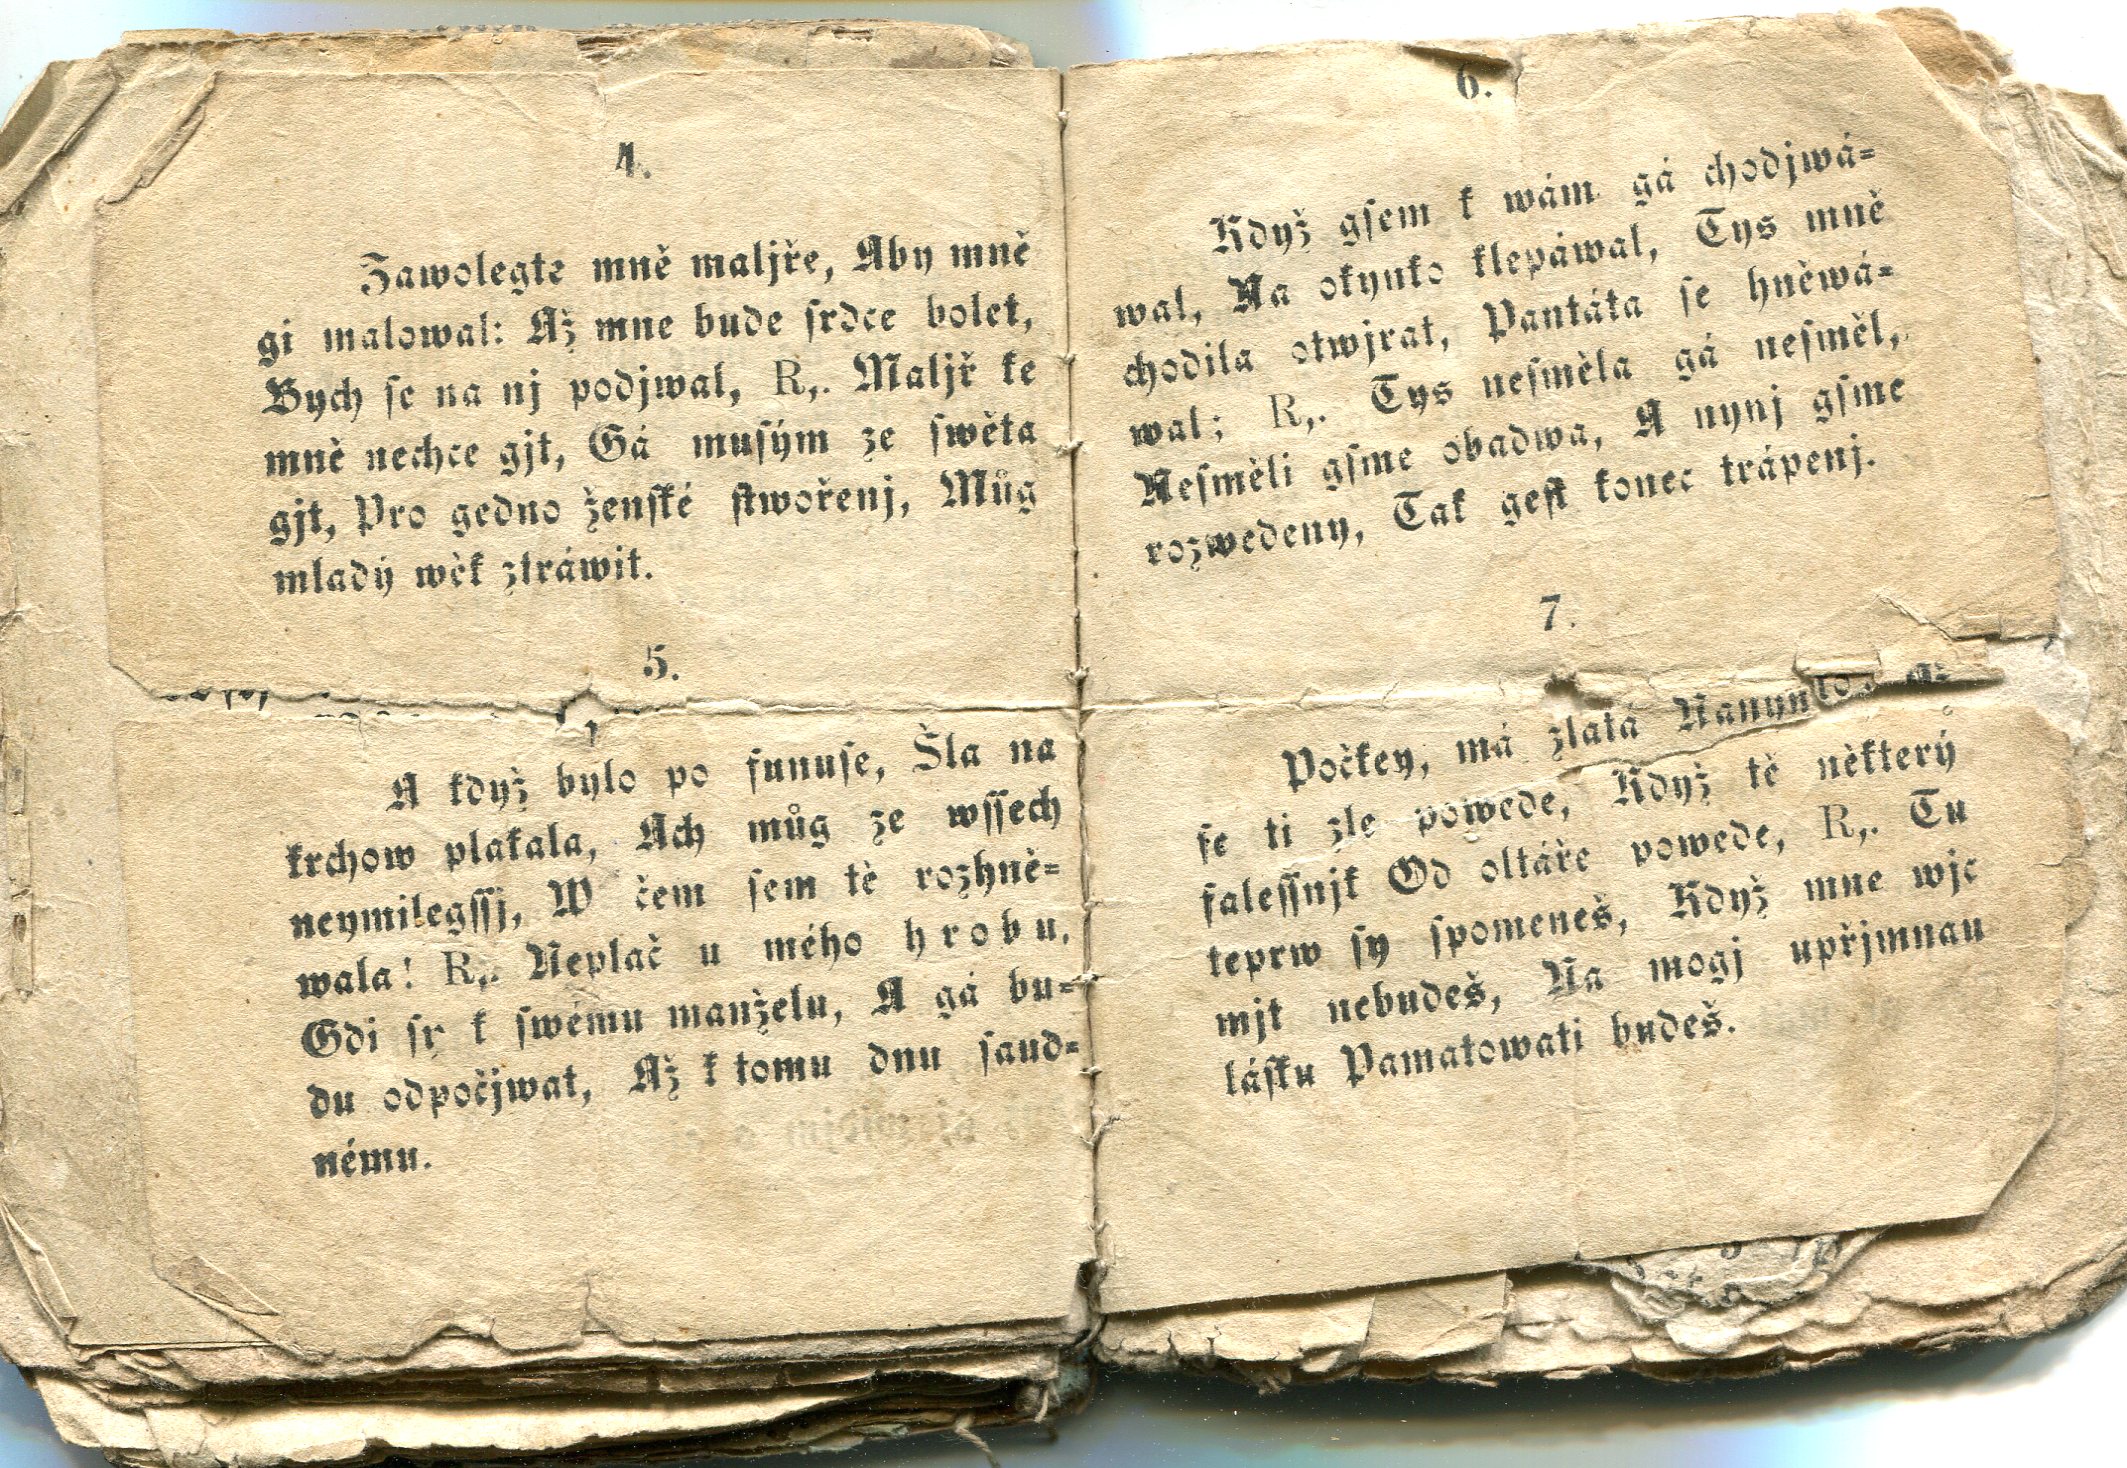 4.
Zawolegte mně maljře, Aby mně
gi malowal: Až mne bude srdce bolet,
Bych se na nj podjwal, R,. Maljř ke
mně nechce gjt, Gá musým ze swěta
gjt, Pro gedno ženské stwořenj, Můg
mladý wěk ztráwit.
5.
A když bylo po funuse, Šla na
krchow plakala, Ach můg ze wssech
neymilegssj, W čem sem tě rozhně=
wala! R,. Neplač u mého hrobu,
Gdi sy k swému manželu, A gá bu=
du odpočjwat, Až k tomu dnu saud=
nému.
6.
Když gsem k wám gá chodjwá=
wal, Na okynko klepáwal, Tys mně
chodila otwjrat, Pantáta se hněwá=
wal; R,. Tys nesměla gá nesměl,
Nesměli gsme obadwa, A nynj gsme
rozwedeny, Tak gest konec trápenj.
7.
Počkey, má zlatá Nanynko,
se ti zle powede, Když tě některý
falessnjk Od oltáře powede, R,. Tu
teprw sy spomeneš, Když mne wjc
mjt nebudeš, Na mogj upřjmnau
lásku Pamatowati budeš.